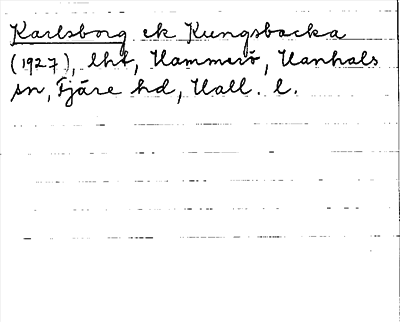 Karlsborg ek Kungsbacka
(1927), lht, Hammerö, Hanhals
sn, Fjäre hd, Hall. l.